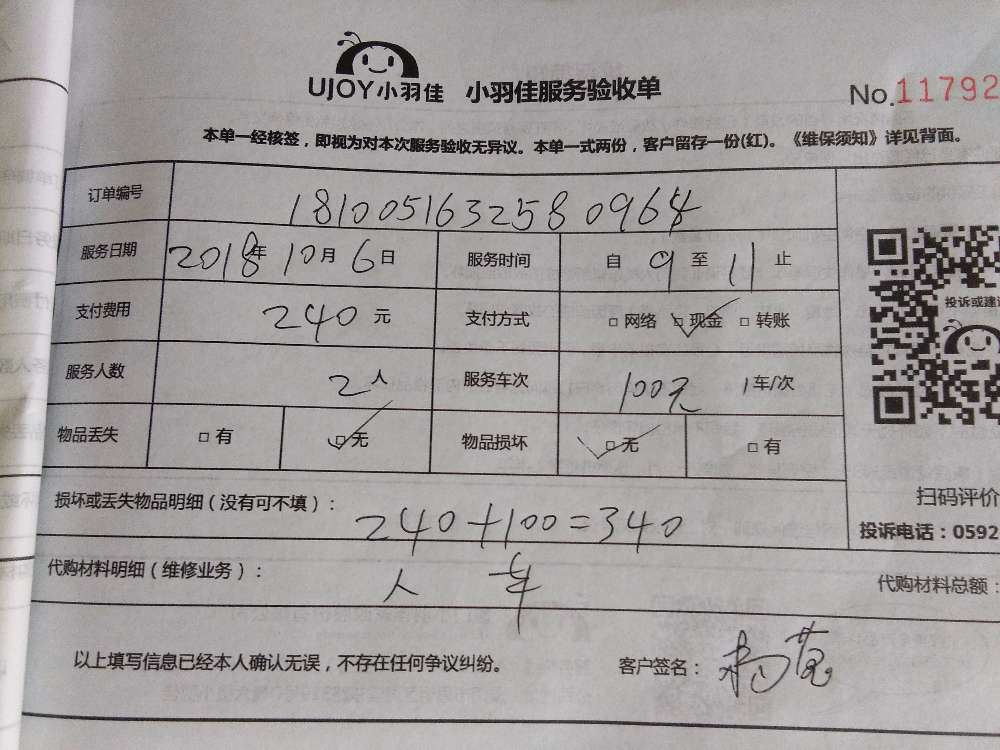 UJOY小羽佳 小羽佳服务验收单 No.11792
本单一经核签，即视为对本次服务验收无异议。本单一式两份，客户留存一份(红)。《维保须知》详见背面。
订单编号 181005163258096
服务日期 2018年10月6日 服务时间 自 9 至 11 止
支付费用 240元 支付方式 □网络 □现金 □转账
投诉或建
服务人数 2人 服务车次 100元 1车/次
物品丢失 □有 □无 物品损坏 □无 □有
扫码评价
损坏或丢失物品明细（没有可不填）：240+100=340
投诉电话：0592
代购材料明细（维修业务）：人 车
代购材料总额：
以上填写信息已经本人确认无误，不存在任何争议纠纷。 客户签名：